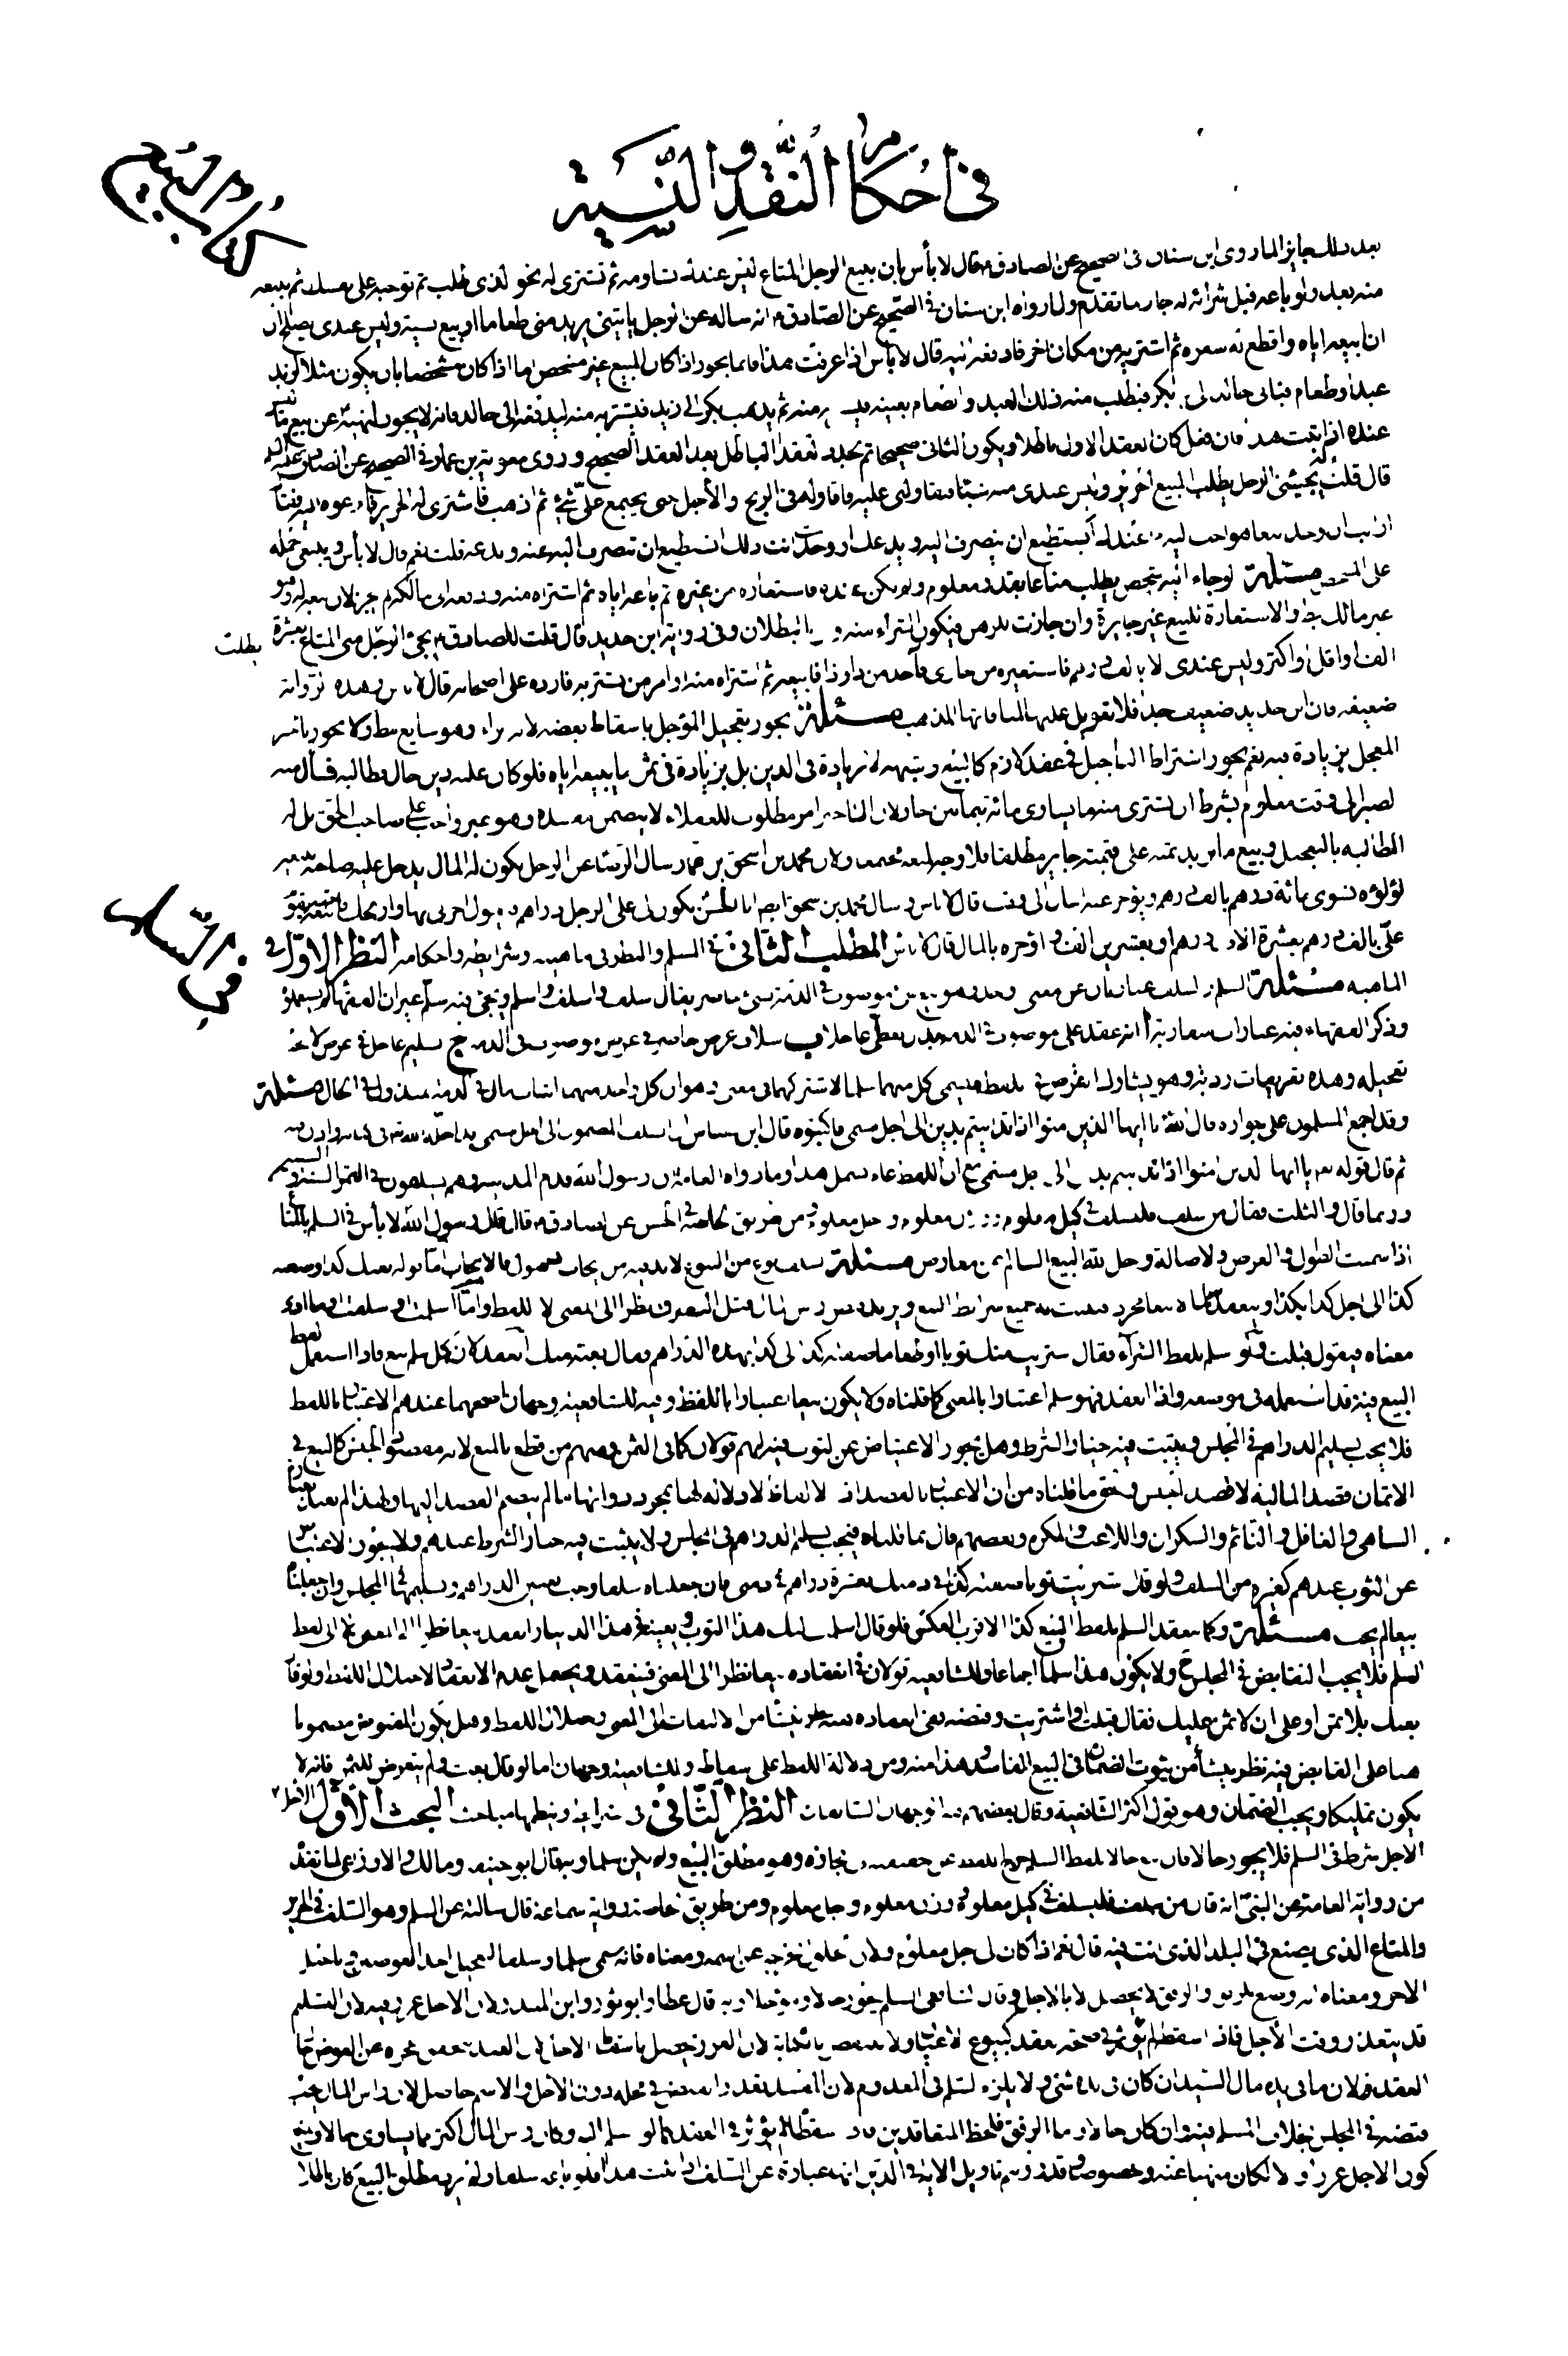 في احكام النقد والنسية
كتاب البيع
بعد ذلك جايز لما روى ابن سنان في الصحيح عن الصادق ع قال لا بأس بان يبيع الرجل المتاع ليس عنده تساومه ثم تشترى له نحو الذى طلب ثم توجبه على نفسك ثم يبيعه
منه بعد ولو باعه قبل شرائه له جاز ما تقدم ولما رواه ابن سنان في الصحيح عن الصادق ع انه ساله عن الرجل ياتينى يريد منى طعاما او بيع نسية وليس عندى يصلح ان
ان ابيعه اياه واقطع له سعره ثم اشتريه من مكان اخر فادفعه اليه قال لا بأس اذا عرفت هذا فانما يجوز اذا كان المبيع غير مشخص اما اذا كان مشخصا بان يكون مثلا لزيد
عبد او طعام فياتى خالد الى بكر فيطلب منه ذلك العبد والطعام بعينه منه ثم يذهب بكر الى زيد فيشتريه منه ليدفعه الى خالد فانه لا يجوز لنهيه عن بيع ما ليس
عنده اذا ثبت هذا فان فعل كان العقد الاول باطلا ويكون الثانى صحيحا ثم يجدد العقد الباطل بعد العقد الصحيح وروى معوية بن عمار في الصحيح عن الصادق عليه السلم
قال قلت يجيئنى الرجل يطلب البيع الحرير وليس عندى منه شيئا فيقاولنى عليه واقاوله في الربح والاجل حتى يجتمع على شئ ثم اذهب فاشترى له الحرير فادعوه اليه فقال
ارايت ان وجد بيعا هو احب اليه مما عندك ايستطيع ان ينصرف اليه ويدعك او وجدت انت ذلك اتستطيع ان تنصرف اليه عنه وتدعه قلت نعم قال لا بأس وينبغى حمله
على المشخص مسئلة لو جاء اليه شخص يطلب متاعا بقدر معلوم ولم يكن عنده فاستعاره من غيره ثم باعه اياه ثم اشتراه منه ودفعه الى مالكه لم يجز لان بيعه له وهو
غير مالك خطا والاستعارة للبيع غير جايزة وان جازت للرهن فيكون الشراء منه البطلان وفى رواية ابن حديد قال قلت للصادق ع يجئ الرجل منى المتاع بعشرة
يطلب
الف او اقل او اكثر وليس عندى الا بالف درهم فاستعيره من جارى وآخذ من ذا وذا فابيعه ثم اشتراه منه او امر من يشتريه فارده على اصحابه قال لا بأس وهذه الرواية
ضعيفة فان ابن حديد ضعيف جدا فلا تعويل عليها لمنافاتها المذهب مسئلة يجوز تعجيل المؤجل باسقاط بعضه لانه ابراء وهو سايغ مطلقا ولا يجوز تاخير
المعجل بزيادة فيه نعم يجوز اشتراط التاجيل في عقد لازم كالبيع وشبهه لا بزيادة في الدين بل بزيادة في ثمن ما يبيعه اياه فلو كان عليه دين حال فطالبه فسأل منه
الصبر الى وقت معلوم بشرط ان يشترى منه ما يساوى مائة بثمانين جاز لان التاخير امر مطلوب للعقلاء لا يتضمن مفسدة وهو غير واجب على صاحب الحق بل له
المطالبة بالتعجيل وبيع ما يزيد ثمنه على قيمته جايز مطلقا فلا وجه لمنعه مجتمعا ولان محمد بن اسحق بن عمار سال الرضا ع عن الرجل يكون له المال يدخل على صاحبه يبيعه
لؤلؤة تسوى مائة درهم بالف درهم ويؤخر عنه المال الى وقت قال لا بأس وسال محمد بن اسحق ايضا ابا الحسن يكون لى على الرجل دراهم فيقول اخرنى بها وانا اربحك فابيعه جبة تقوم
علي بالف درهم بعشرة الاف درهم او بعشرين الفا واؤخره بالمال قال لا بأس المطلب الثانى في السلم والنظر في ماهيته وشرايطه واحكامه النظر الاول في
في السلم
الماهية مسئلة السلم والسلف عبارتان عن معنى واحد وهو بيع شئ موصوف في الذمة بشئ حاضر يقال سلف واسلف واسلم ويجئ فيه سلم غير ان الفقهاء لم يستعملوه
وذكر الفقهاء فيه عبارات متقاربة انه عقد على موصوف في الذمة ببدل يعطى عاجلا اسلاف عوض حاضر في عوض موصوف في الذمة تسليم عاجل في عوض لا يجب
تعجيله وهذه تعريفات ردية وهو يشارك القرض في لفظ السلف يسمى كل منهما سلفا لاشتراكهما في معنى وهو ان كل واحد منهما اثبات مال في الذمة مبذول في الحال مسئلة
وقد اجمع المسلمون على جوازه قال الله تع يا ايها الذين امنوا اذا تداينتم بدين الى اجل مسمى فاكتبوه قال ابن عباس اشهد ان السلف المضمون الى اجل مسمى قد احله الله تع في كتابه واذن فيه
ثم قال قوله تعه يا ايها الذين امنوا اذا تداينتم بدين الى اجل مسمى مع ان اللفظ عام يشمل هذا وما رواه العامة ان رسول الله قدم المدينة وهم يسلفون في التمر السنة والسنتين
وربما قال والثلث فقال من سلف فليسلف في كيل معلوم ووزن معلوم واجل معلوم ومن طريق الخاصة في الحسن عن الصادق ع قال قال رسول الله لا بأس في السلم بالمتاع
اذا سميت الطول والعرض ولاصالة واحل الله البيع السالم عن معارض مسئلة السلف نوع من البيوع لابد فيه من ايجاب وقبول فالايجاب اما قوله بعتك كذا وصفته
كذا الى اجل كذا بكذا وينعقد سلما لا بيعا مجردا فيثبت له جميع شرايط البيع ويزيد وجوب قبض راس المال قبل التفرق نظرا الى المعنى لا للفظ واما اسلمت او سلفت او ما ادى
معناه فيقول قبلت ولو اسلم بلفظ الشرآء فقال اشتريت منك ثوبا او طعاما صفته كذا الى كذا بهذه الدراهم فقال بعته منك انعقد لان كل سلم بيع فاذا استعمل لفظ
البيع فيه فقد استعمله في موضعه واذا انعقد فهو سلم اعتبارا بالمعنى كما قلناه ولا يكون بيعا اعتبارا باللفظ وفيه للشافعية وجهان اصحهما عندهم الاعتبار باللفظ
فلا يجب تسليم الدراهم في المجلس ويثبت فيه خيار الشرط وهل يجوز الاعتياض عن الثوب فيه لهم قولان كما في الثمن ومنهم من قطع بالمنع لانه مقصود الجنس كالبيع وفى
الاثمان قصد المالية لا قصد الجنس والحق ما قلناه من ان الاعتبار بالقصد اذ لا الفاظ لا دلالة لها بمجرد ذواتها ما لم ينضم القصد اليها ولهذا لم يعتبر عبارة
الساهى والغافل والنائم والسكران واللاعب والمكره وبعضهم قال بما قلناه فيجب تسليم الدراهم في المجلس ولا يثبت فيه خيار الشرط عندهم ولا يجوز الاعتياض
عن الثوب عندهم كغيره من السلف ولو قال اشتريت ثوبا صفته كذا في ذمتك بعشرة دراهم في ذمتى فان جعلناه سلما وجب تعيين الدراهم وتسليمها في المجلس وان جعلناه
بيعا لم يجب مسئلة وكما ينعقد السلم بلفظ البيع كذا الاقرب العكس فلو قال اسلمت اليك هذا الثوب بعينه في هذا الدينار انعقد بيعا نظرا الى المعنى لا الى لفظ
السلم فلا يجب التقابض في المجلس ح ولا يكون هذا سلما اجماعا وللشافعية قولان في انعقاده بيعا نظرا الى المعنى فينعقد ويحتمل عدم الانعقاد لاختلال اللفظ ولو قال
بعتك بلا ثمن او على ان لا ثمن عليك فقال قبلت او اشتريت وقبضه ففى انعقاده هبة نظر ينشأ من الالتفات الى المعنى واختلال اللفظ وهل يكون المقبوض مضمونا
هنا على القابض فيه نظر ينشأ من ثبوت الضمان في البيع الفاسد وهذا منه ومن دلالة اللفظ على اسقاطه وللشافعية وجهان اما لو قال بعت ولم يتعرض للثمن فانه لا
يكون تمليكا ويجب الضمان وهو قول اكثر الشافعية وقال بعضهم فيه الوجهان السابقان النظر الثانى في شرايطه وينظمها مباحث البحث الاول الاجل
الاجل شرط في السلم فلا يجوز حالا فان بيع حالا بلفظ السلم خرج اللفظ عن حقيقته الى مجازه وهو مطلق البيع ولم يكن سلما وبه قال ابو حنيفة ومالك والاوزاعى لما تقدم
من رواية العامة عن النبى انه قال من سلف فليسلف في كيل معلوم ووزن معلوم واجل معلوم ومن طريق الخاصة رواية سماعة قال سالته عن السلم وهو السلف في الحرير
والمتاع الذى يصنع في البلد الذى انت فيه قال نعم اذا كان الى اجل معلوم ولان الحلول يخرجه عن اسمه ومعناه فانه سمى سلما وسلفا لتعجيل احد العوضين وتاخير
الاخر ومعناه انه وضع للرفق والرفق لا يحصل الا بالاجل وقال الشافعى السلم يجوز حالا ومؤجلا وبه قال عطا وابو ثور وابن المنذر لان الاجل غرر فيه لان التسليم
قد يتعذر وقت الاجل فاذا اسقط لم يؤثر في صحة عقد كبيوع الاعيان ولا ينتقض بالكتابة لان الغرر يحصل باسقاط الاجل لان العبد يتحقق عجزه عن العوض حال
العقد ولان ما في يده مال السيد ان كان في يده شئ ولا يلزم السلم في المعدوم لان العقد يقتضى في محله دون الاجل والاسم حاصل لان راس المال يجب
قبضه في المجلس بخلاف المسلم فيه وان كان حالا واما الرفق فلحظ المتعاقدين فاذا اسقطاه لم يؤثر في العقد كما لو اسلم اليه وكان راس المال اكثر مما يساوى حالا ويمنع
كون الاجل غررا والا لكان منهيا عنه وخصوصا وقد تقدم تاويل الاية في الدين انه عبارة عن السلف اذا ثبت هذا فلو باعه سلما ولم يرد مطلق البيع كان باطلا